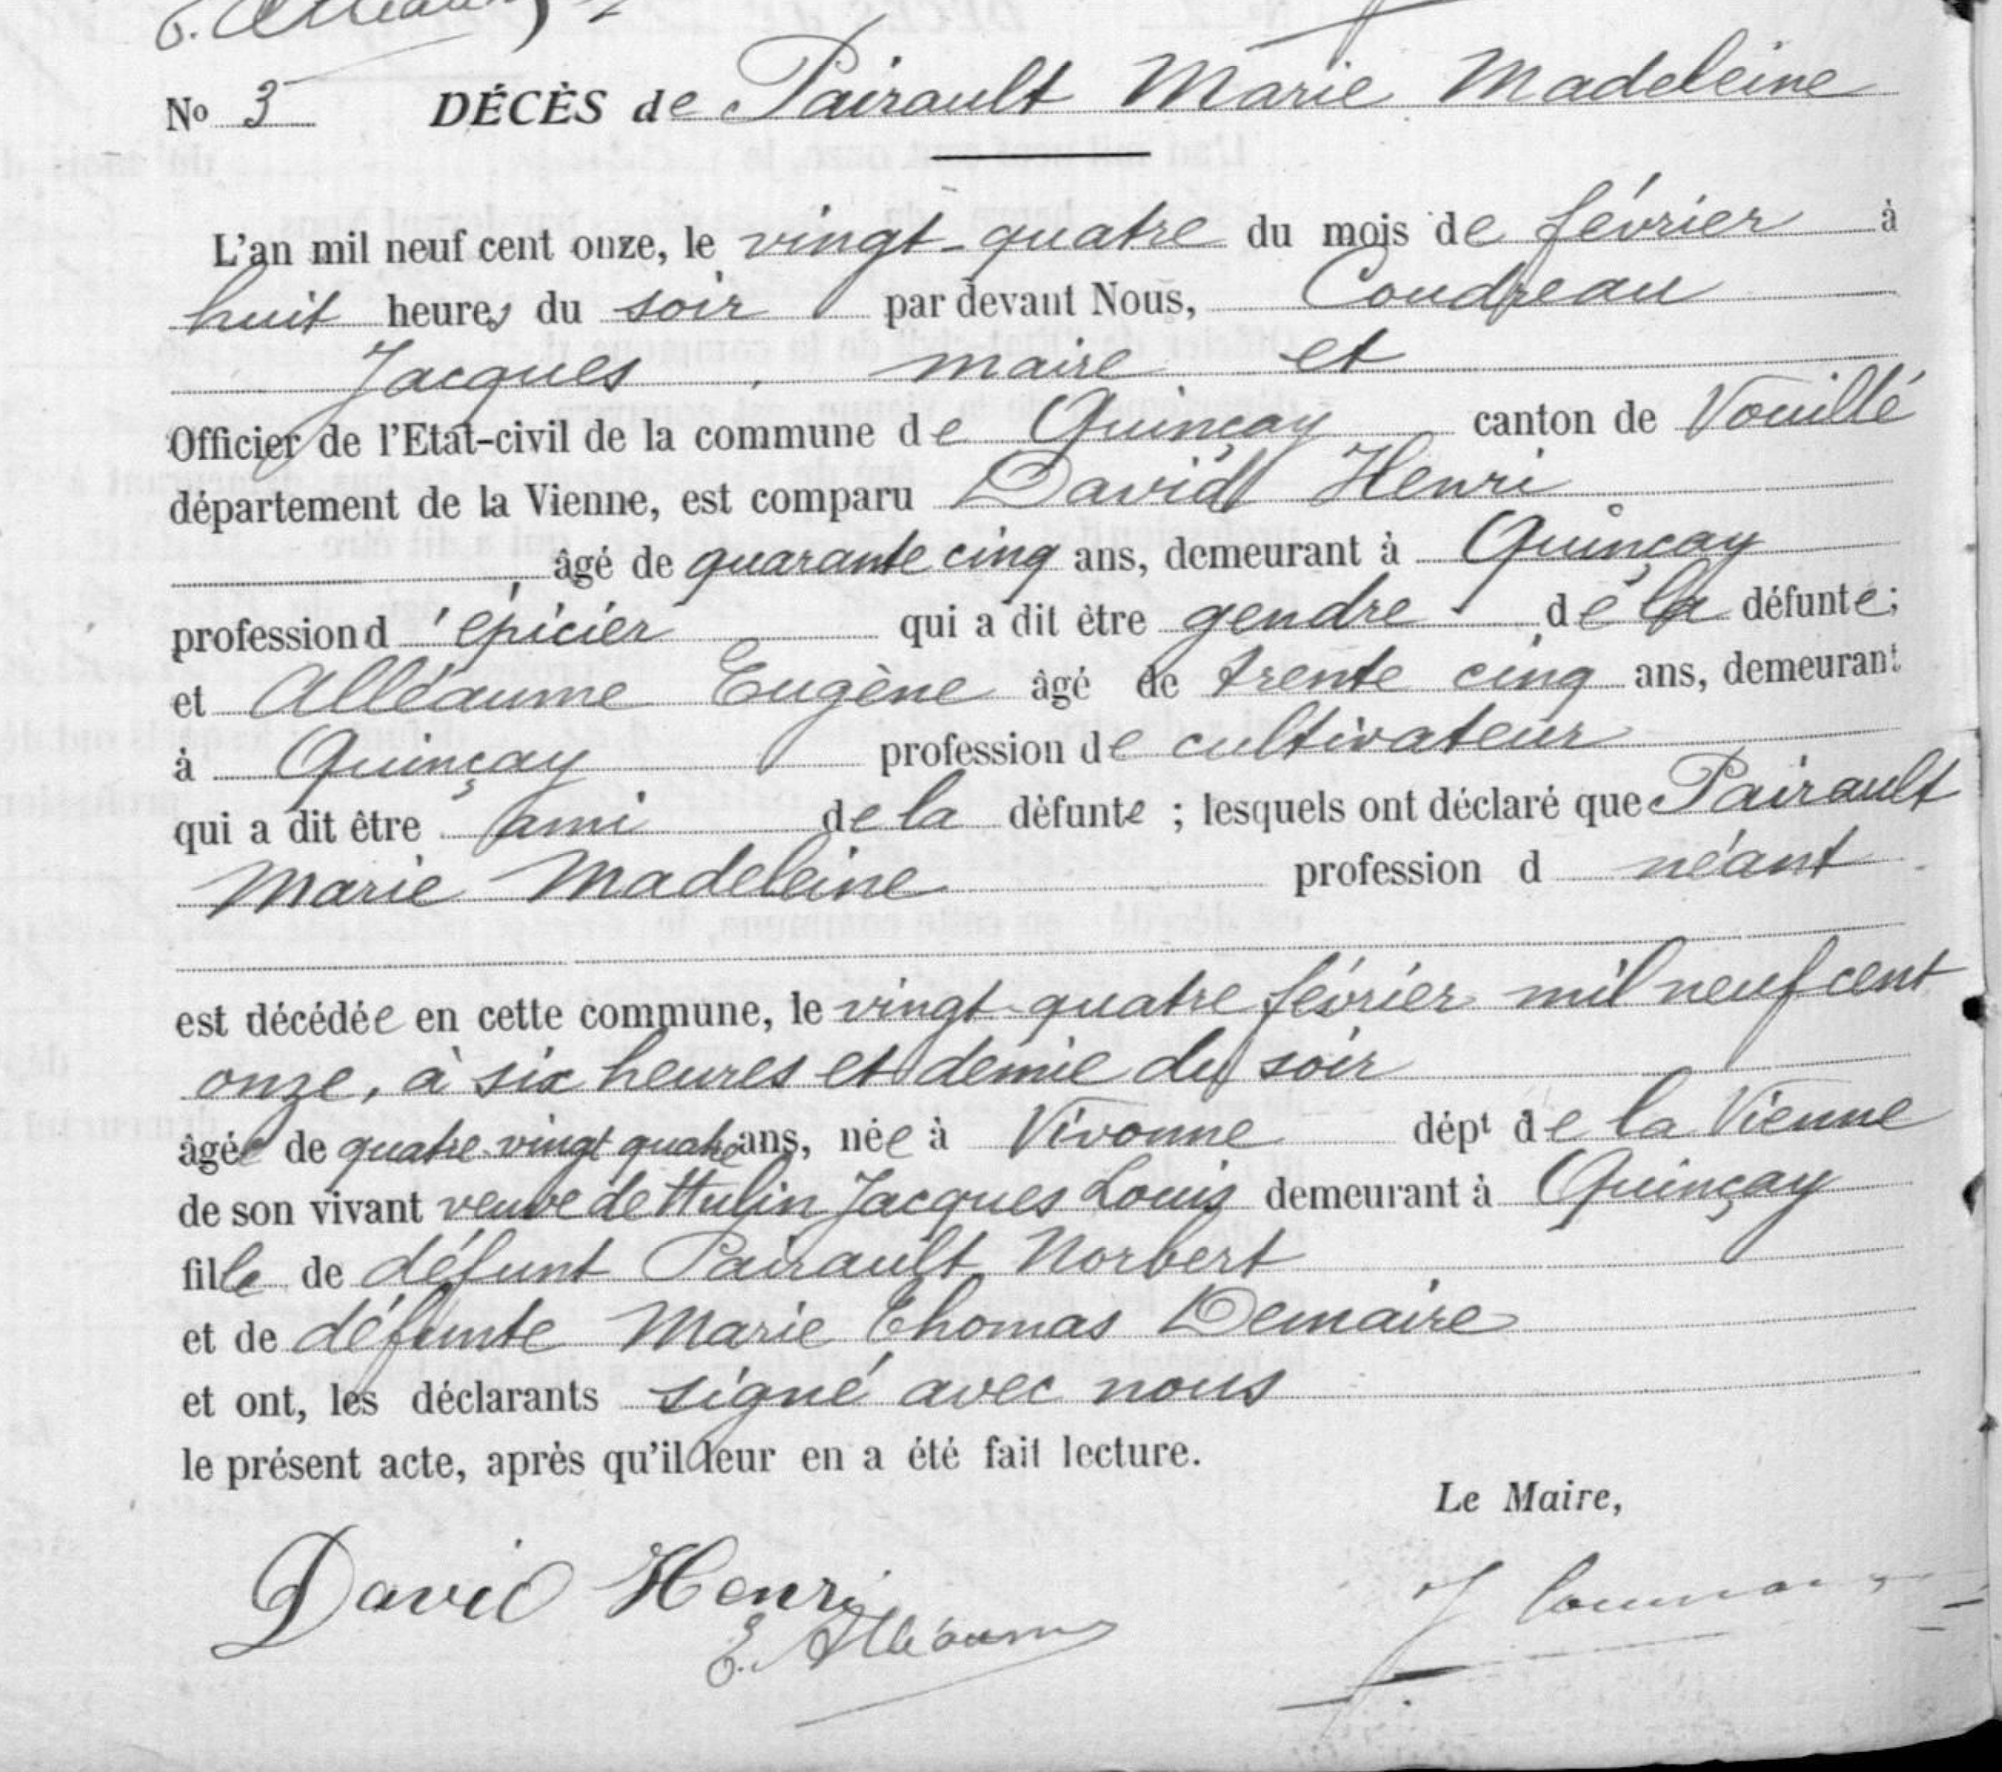 E. Alléaume
No 3 DÉCÈS de Pairault Marie Madeleine
L'an mil neuf cent onze, le vingt-quatre du mois de février à
huit heures du soir par devant Nous, Coudreau
Jacques, maire et
Officier de l'Etat-civil de la commune de Quinçay canton de Vouillé
département de la Vienne, est comparu David Henri
âgé de quarante cinq ans, demeurant à Quinçay
profession d'épicier qui a dit être gendre de la défunte;
et Alléaume Eugène âgé de trente cinq ans, demeurant
à Quinçay profession de cultivateur
qui a dit être ami de la défunte ; lesquels ont déclaré que Pairault
Marie Madeleine profession d néant
est décédée en cette commune, le vingt-quatre février mil neuf cent
onze, à six heures et demie du soir
âgée de quatre-vingt quatre ans, née à Vivonne dépt de la Vienne
de son vivant veuve de Hulin Jacques Louis demeurant à Quinçay
fille de défunt Pairault Norbert
et de défunte Marie Thomas Demaire
et ont, les déclarants signé avec nous
le présent acte, après qu'il leur en a été fait lecture.
Le Maire,
David Henri
E. Alléaume